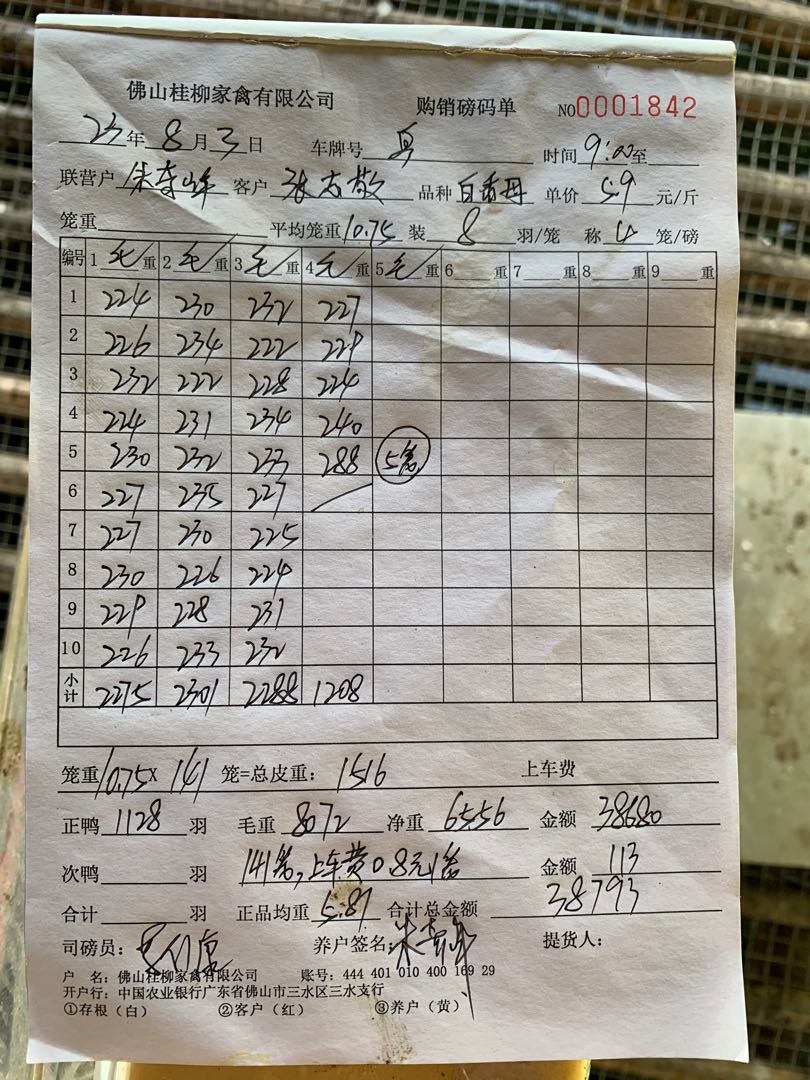 佛山桂柳家禽有限公司 购销磅码单 NO0001842
23年8月3日 车牌号 时间9:00至
联营户 客户 品种 单价5.9元/斤
笼重 平均笼重10.75装8羽/笼 称4笼/磅
编号 1毛重 2毛重 3毛重 4毛重 5毛重 6重 7重 8重 9重
1 224 230 232 227
2 226 234 222 229
3 232 222 228 224
4 224 231 234 240
5 230 232 233 288 5笼
6 227 235 227
7 227 230 225
8 230 226 224
9 229 228 231
10 226 233 232
小计 2275 2301 2288 1208
笼重10.75×141笼=总皮重:1516 上车费
正鸭1128羽 毛重8072 净重6556 金额38680
次鸭羽 141笼,上车费0.8元/笼 金额113
合计羽 正品均重5.81 合计总金额38793
司磅员: 养户签名: 提货人:
户 名:佛山桂柳家禽有限公司 账号:444 401 010 400 169 29
开户行:中国农业银行广东省佛山市三水区三水支行
①存根(白) ②客户(红) ③养户(黄)